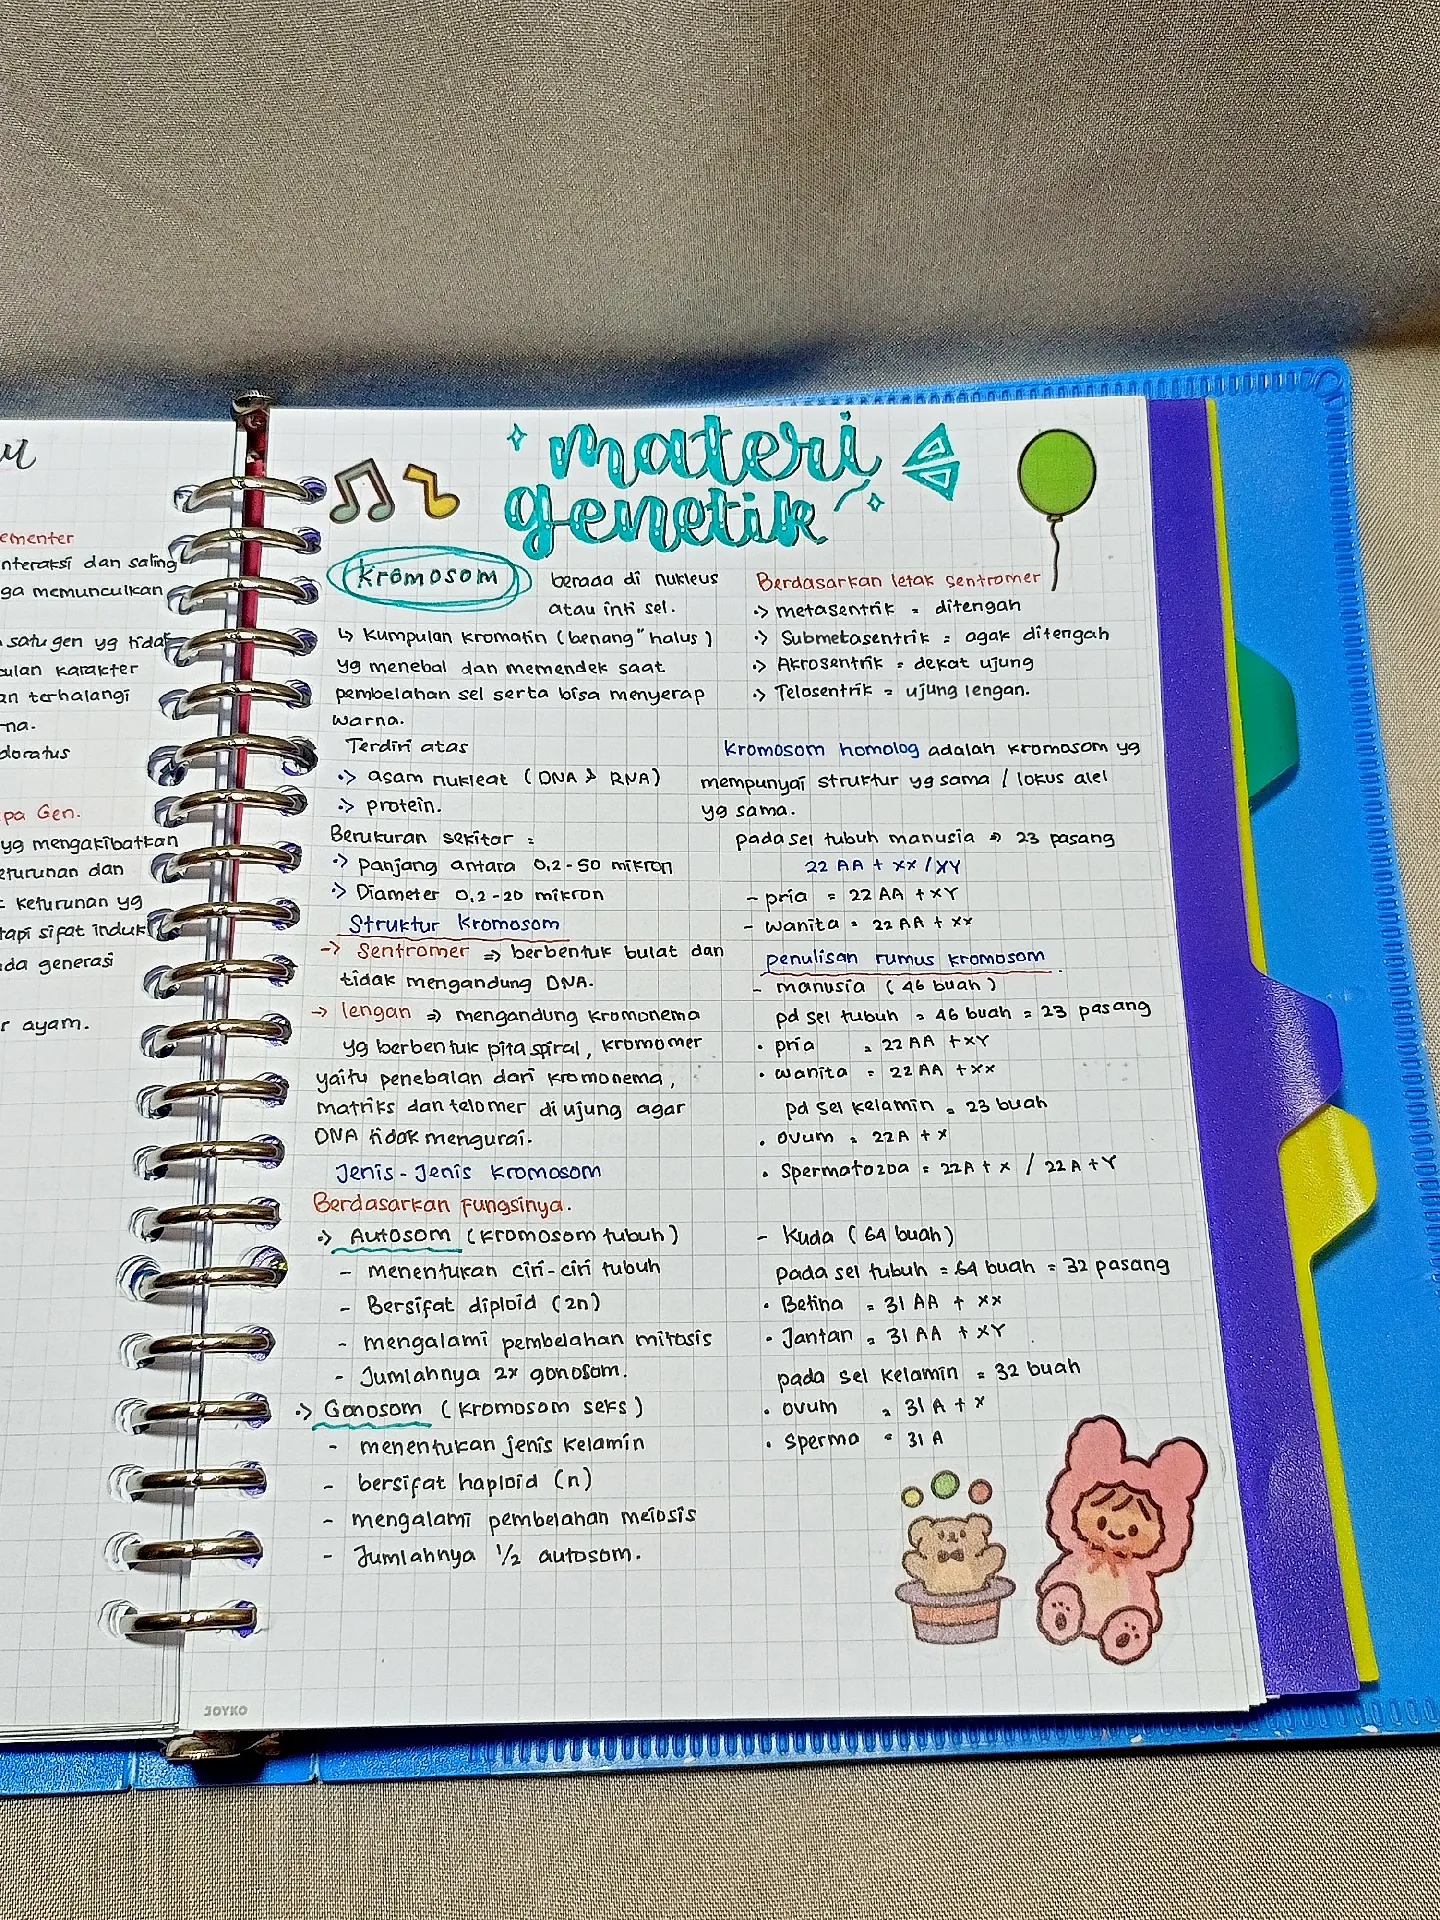 ementer
nteraksi dan saling
ga memunculkan
satu gen yg tidak
ulan karakter
an terhalangi
na.
doratus
pa Gen.
yg mengakibatkan
eturunan dan
= keturunan yg
tapi sifat induk
da generasi
r ayam.
materi
genetik
Kromosom
berada di nukleus
atau inti sel.
↳ Kumpulan kromatin (benang" halus)
yg menebal dan memendek saat
pembelahan sel serta bisa menyerap
warna.
Terdiri atas
·> asam nukleat (DNA & RNA)
·> protein.
Berukuran sekitar =
·> panjang antara 0,2-50 mikron
·> Diameter 0,2-20 mikron
Struktur Kromosom
-> Sentromer => berbentuk bulat dan
tidak mengandung DNA.
-> lengan => mengandung kromonema
yg berbentuk pita spiral, kromomer
yaitu penebalan dari kromonema,
matriks dan telomer di ujung agar
DNA tidak mengurai.
Jenis-Jenis kromosom
Berdasarkan Fungsinya.
·> Autosom (kromosom tubuh)
- menentukan ciri-ciri tubuh
- Bersifat diploid (2n)
- mengalami pembelahan mitosis
- Jumlahnya 2x gonosom.
·> Gonosom (kromosom seks)
- menentukan jenis kelamin
- bersifat haploid (n)
- mengalami pembelahan meiosis
- Jumlahnya 1/2 autosom.
Berdasarkan letak sentromer
·> metasentrik = ditengah
·> Submetasentrik = agak ditengah
·> Akrosentrik = dekat ujung
·> Telosentrik = ujung lengan.
kromosom homolog adalah kromosom yg
mempunyai struktur yg sama / lokus alel
yg sama.
pada sel tubuh manusia => 23 pasang
22 AA + XX / XY
- pria = 22 AA + XY
- wanita = 22 AA + XX
penulisan rumus kromosom
- manusia (46 buah)
pd sel tubuh = 46 buah = 23 pasang
• pria = 22 AA + XY
• wanita = 22 AA + XX
pd sel kelamin = 23 buah
• ovum = 22A + X
• Spermatozoa = 22A + X / 22 A + Y
- Kuda (64 buah)
pada sel tubuh = 64 buah = 32 pasang
• Betina = 31 AA + XX
• Jantan = 31 AA + XY
pada sel kelamin = 32 buah
• ovum = 31 A + X
• Sperma = 31 A
JOYKO